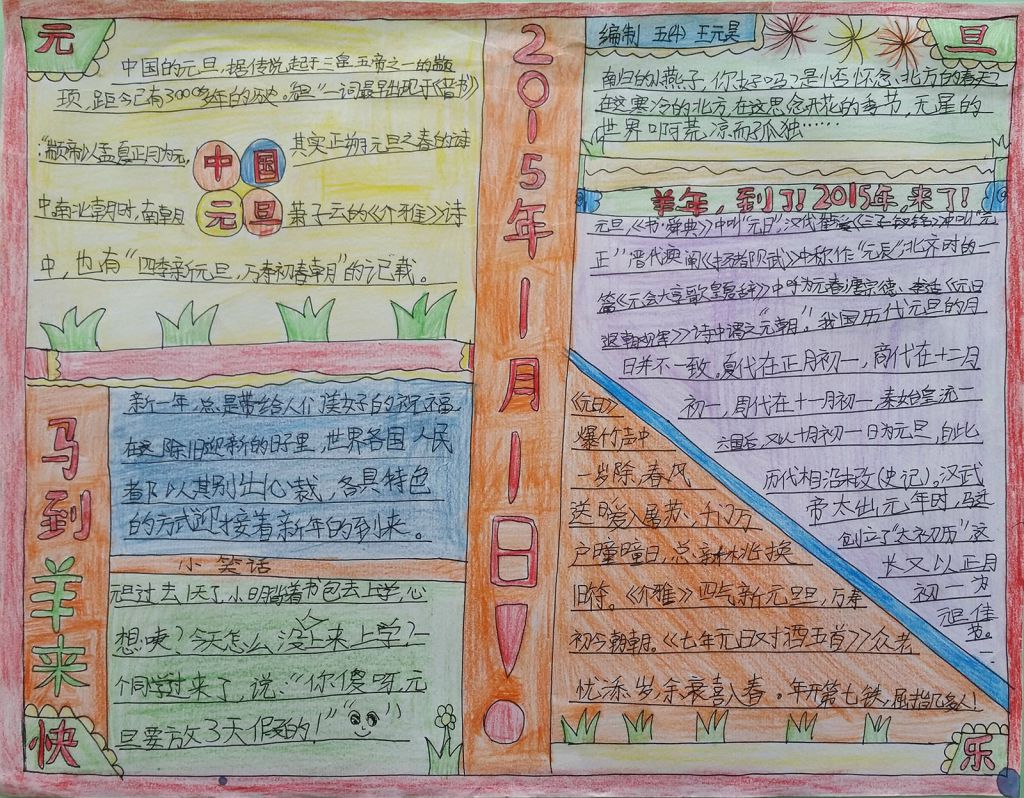 元
中国的元旦，据传说起于三皇五帝之一的颛
顼，距今已有3000多年的历史。"元旦"一词最早出现于《晋书》
"颛帝以孟夏正月为元，
其实正朔元旦之春的诗
中国
元旦
中南北朝时，南朝
萧子云的《介雅》诗
中，也有"四季新元旦，万寿初春朝"的记载。
马到羊来
新一年，总是带给人们美好的祝福
在这除旧迎新的日子里，世界各国人民
都以其别出心裁，各具特色
的方式迎接着新年的到来。
小笑话
元旦过去1天了，小明背着书包去上学，心
想：咦？今天怎么没上来上学？一
个同学过来了，说："你傻呀，元
旦要放3天假的！"
快
2015年1月1日！
编制 五(4) 王元昊
旦
南归的小燕子，你好吗？是否怀念北方的春天？
在这寒冷的北方，在这思念开花的季节，无星的
世界叫荒凉而孤独……
羊年，到了！2015年，来了！
元旦，《书·舜典》中叫"元日"，汉代
正"，晋代庾阐《扬都赋》中称作"元辰"，北齐时的一
篇《元会大享歌皇夏辞》中呼为元春，唐
退朝观军》诗中谓之"元朝"。我国历代元旦的月
日并不一致。夏代在正月初一，商代在十二月
初一，周代在十一月初一，秦始皇流一
六国后，又以十月初一日为元旦，自此
历代相沿未改（史记）。汉武
帝太出元年时，
创立了"太初历"，这
才又以正月
初一为
元旦佳
节。
《元日》
爆竹声中
一岁除，春风
送暖入屠苏，千门万
户曈曈日，总新桃换
旧符。《介雅》四气新元旦，万寿
初今朝朝。《七年元日对酒五首》众老
忧添岁，余衰喜入春。年开第七秩，屈指几多人！
乐